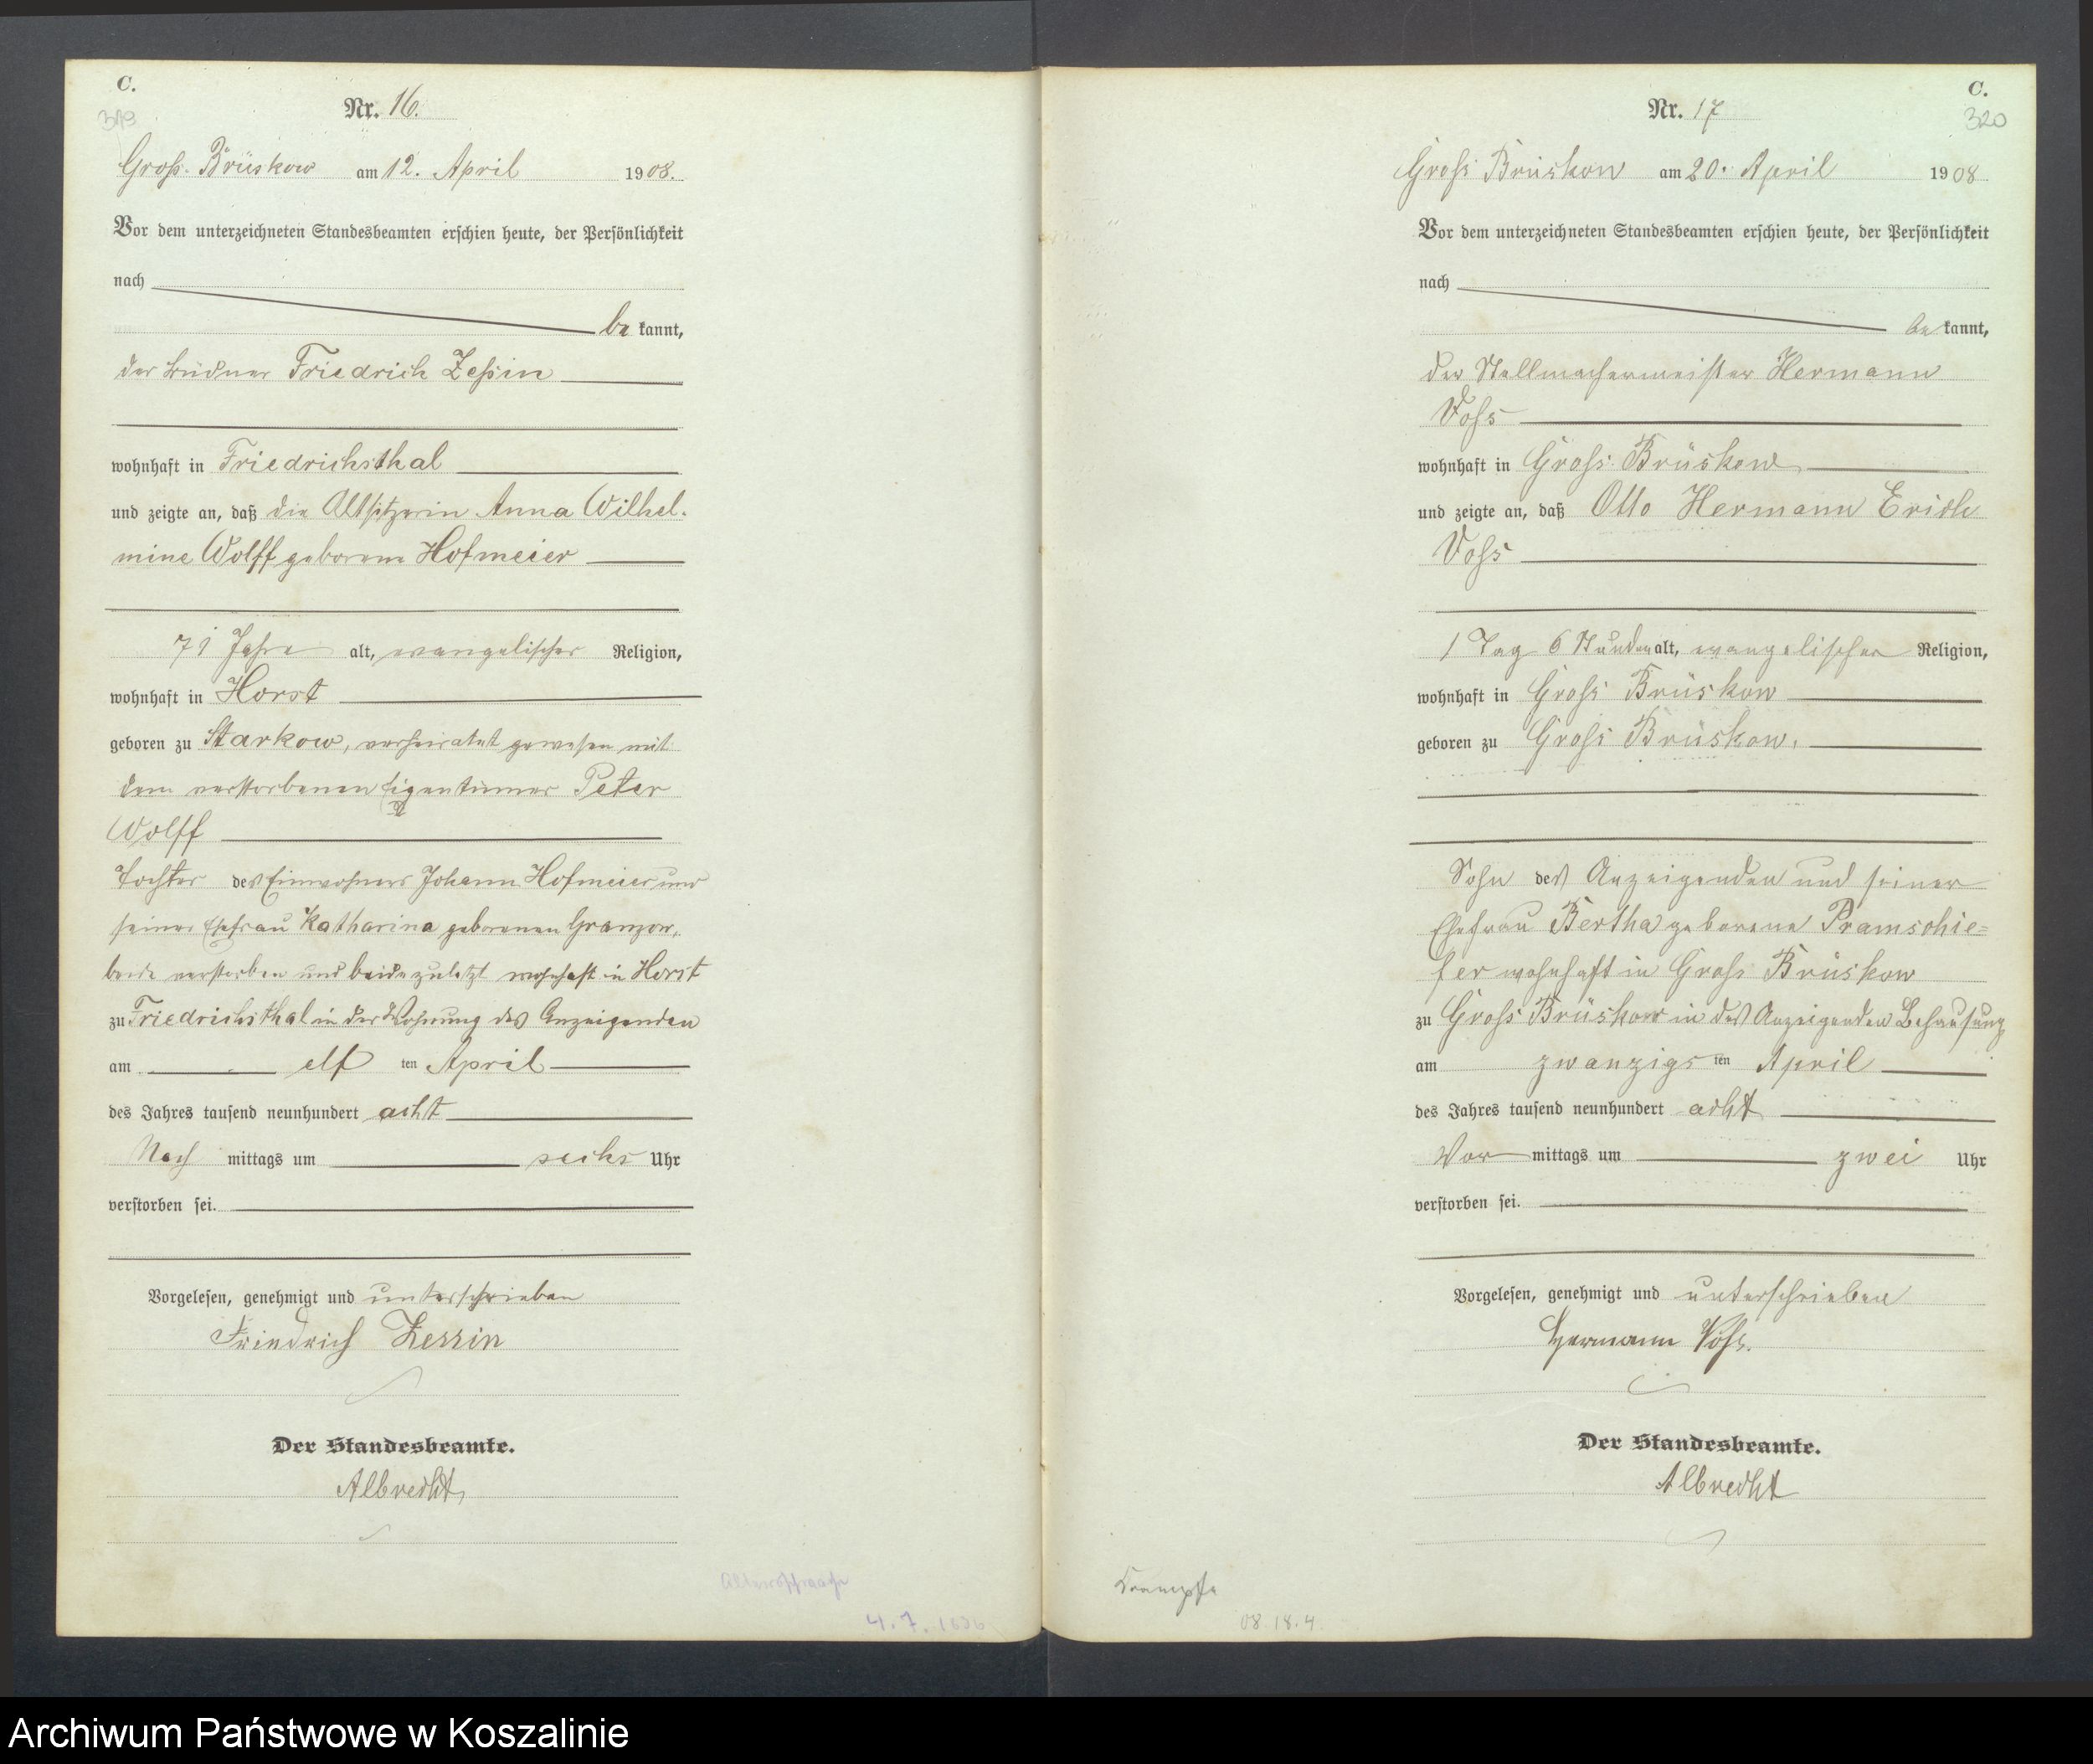 C.
319
Nr. 16.
Gross Brüskow am 12. April 1908.
Vor dem unterzeichneten Standesbeamten erschien heute, der Persönlichkeit
nach
be kannt,
der Büdner Friedrich Zessin
wohnhaft in Friedrichsthal
und zeigte an, daß die Altsitzerin Anna Wilhel-
mine Wolff geborene Hofmeier
71 Jahre alt, evangelischer Religion,
wohnhaft in Horst
geboren zu Starkow, verheiratet gewesen mit
dem verstorbenen Eigentümer Peter
Wolff
Tochter des Einwohners Johann Hofmeier und
seiner Ehefrau Katharina geborenen Granzow,
beide verstorben und beide zuletzt wohnhaft in Horst
zu Friedrichsthal in der Wohnung des Anzeigenden
am elf ten April
des Jahres tausend neunhundert acht
Nach mittags um sechs Uhr
verstorben sei.
Vorgelesen, genehmigt und unterschrieben
Friedrich Zessin
Der Standesbeamte.
Albrecht
Altersschwäche
4.7.1836
C.
320
Nr. 17
Gross Brüskow am 20. April 1908
Vor dem unterzeichneten Standesbeamten erschien heute, der Persönlichkeit
nach
be kannt,
der Stellmachermeister Hermann
Voss
wohnhaft in Gross Brüskow
und zeigte an, daß Otto Hermann Erich
Voss
1 Tag 6 Stunden alt, evangelischer Religion,
wohnhaft in Gross Brüskow
geboren zu Gross Brüskow.
Sohn des Anzeigenden und seiner
Ehefrau Bertha geborene Pramschie=
fer wohnhaft in Gross Brüskow
zu Gross Brüskow in des Anzeigenden Behausung
am zwanzigs ten April
des Jahres tausend neunhundert acht
Vor mittags um zwei Uhr
verstorben sei.
Vorgelesen, genehmigt und unterschrieben
Hermann Voss.
Der Standesbeamte.
Albrecht
Krämpfe
08.18.4.
Archiwum Państwowe w Koszalinie